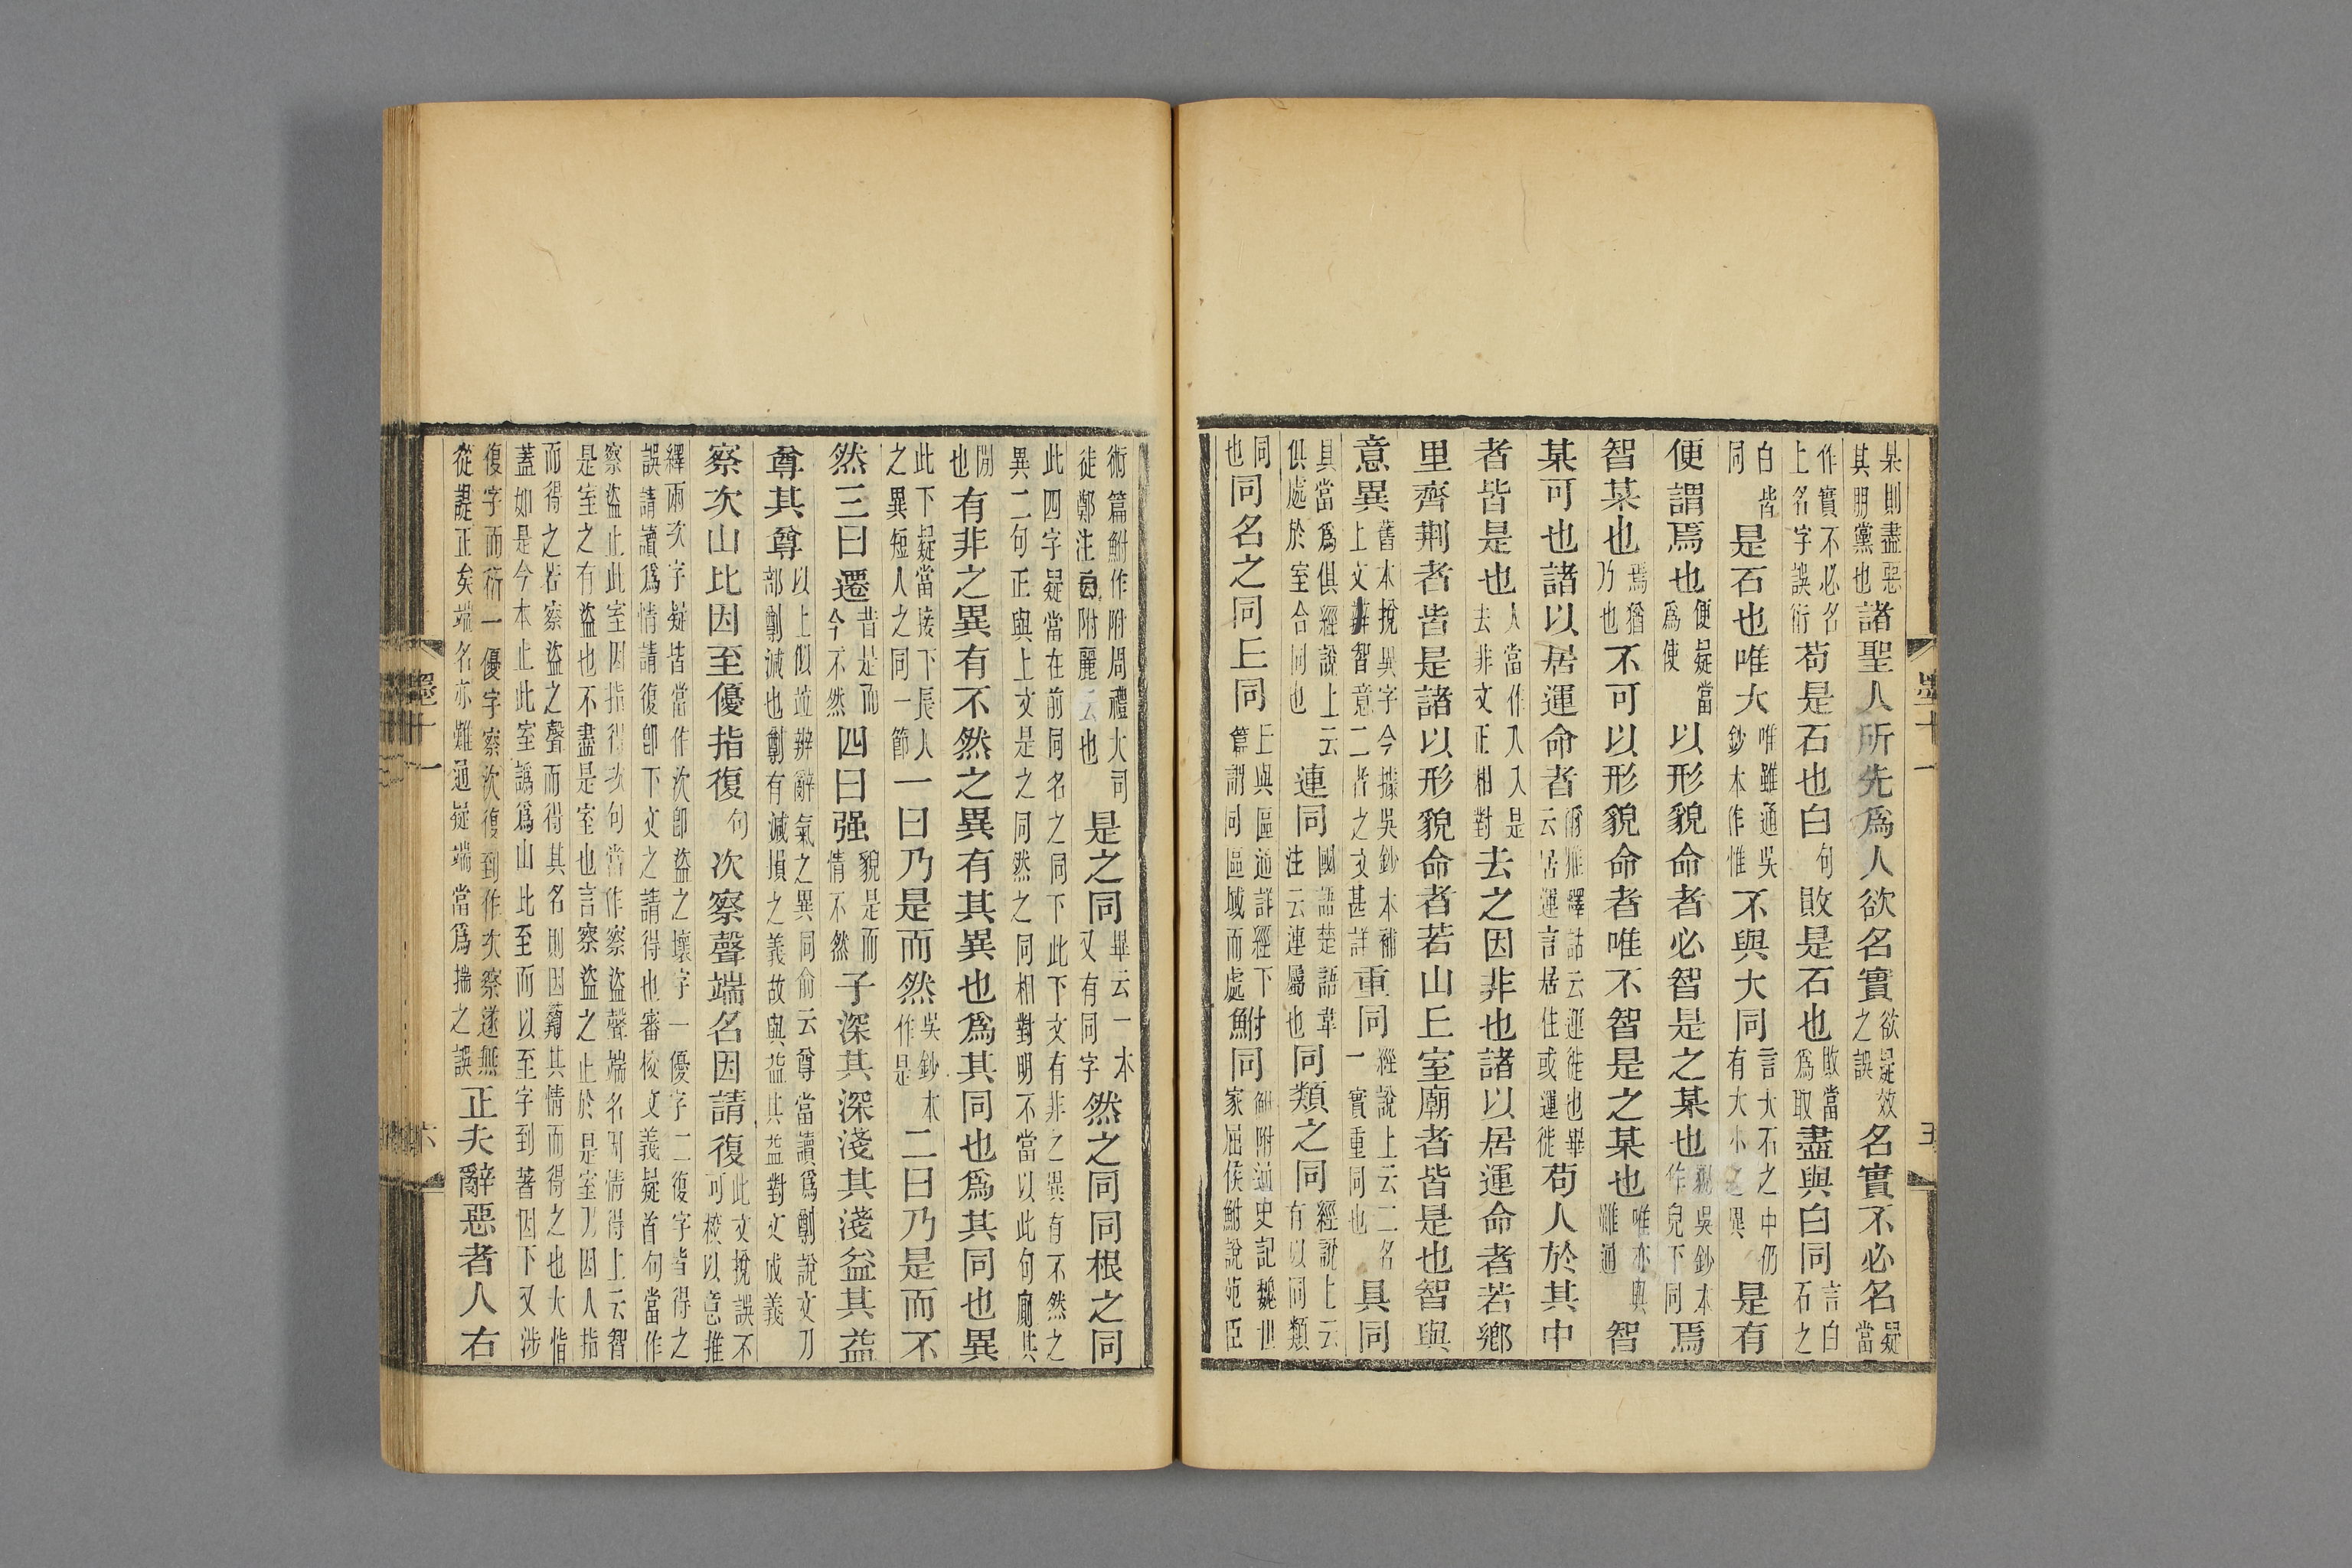 杲則盡惡其朋黨也諸聖人所先爲人欲名實欲疑效之誤名實不必名疑當
作實不必名上名字誤衍苟是石也白句敗是石也敗當爲取盡與白同言白石之
白皆同是石也唯大唯雖通吳鈔本作惟不與大同言大石之中仍有大小之異是有
便謂焉也便疑當爲使以形貌命者必智是之某也貌吳鈔本作皃下同焉
智某也焉猶乃也不可以形貌命者唯不智是之某也唯亦與雖通智
某可也諸以居運命者爾雅釋詁云運徙也畢云居運言居住或運徙苟人於其中
者皆是也人當作入入是去非文正相對去之因非也諸以居運命者若鄉
里齊荆者皆是諸以形貌命者若山丘室廟者皆是也智與
意異舊本挩異字今據吳鈔本補上文辯智意二者之文甚詳重同經說上云二名一實重同也具同
具當爲俱經說上云俱處於室合同也連同國語楚語韋注云連屬也同類之同經說上云有以同類
同也同名之同丘同丘與區通詳經下篇謂同區域而處鮒同鮒附通史記魏世家屈侯鮒說苑臣
墨十一
五
術篇鮒作附周禮大司徒鄭注附麗也是之同畢云一本又有同字然之同同根之同
此四字疑當在前同名之同下此下文有非之異有不然之異二句正與上文是之同然之同相對明不當以此句廁其
閒也有非之異有不然之異有其異也爲其同也爲其同也異
此下疑當接下長人之異短人之同一節一曰乃是而然吳鈔本作是二曰乃是而不
然三曰遷昔是而今不然四曰强貌是而情不然子深其深淺其淺益其益
尊其尊以上似竝辨辭氣之異同俞云尊當讀爲劕說文刀部劕減也劕有減損之義故與益其益對文成義
察次山比因至優指復句次察聲端名因請復此文挩誤不可校以意推
繹兩次字疑皆當作次卽盜之壞字一優字二復字皆得之誤請讀爲情請復卽下文之請得也審校文義疑首句當作
察盜止此室因指得次句當作察盜聲端名因情得上云智是室之有盜也不盡是室也言察盜之止於是室乃因人指
而得之若察盜之聲而得其名則因藉其情而得之也大恉蓋如是今本止此室譌爲山比至而以至字到著因下又涉
復字而衍一優字察次復到作次察遂無從諟正矣端名亦難通疑端當爲揣之誤正夫辭惡者人右
墨十一
六